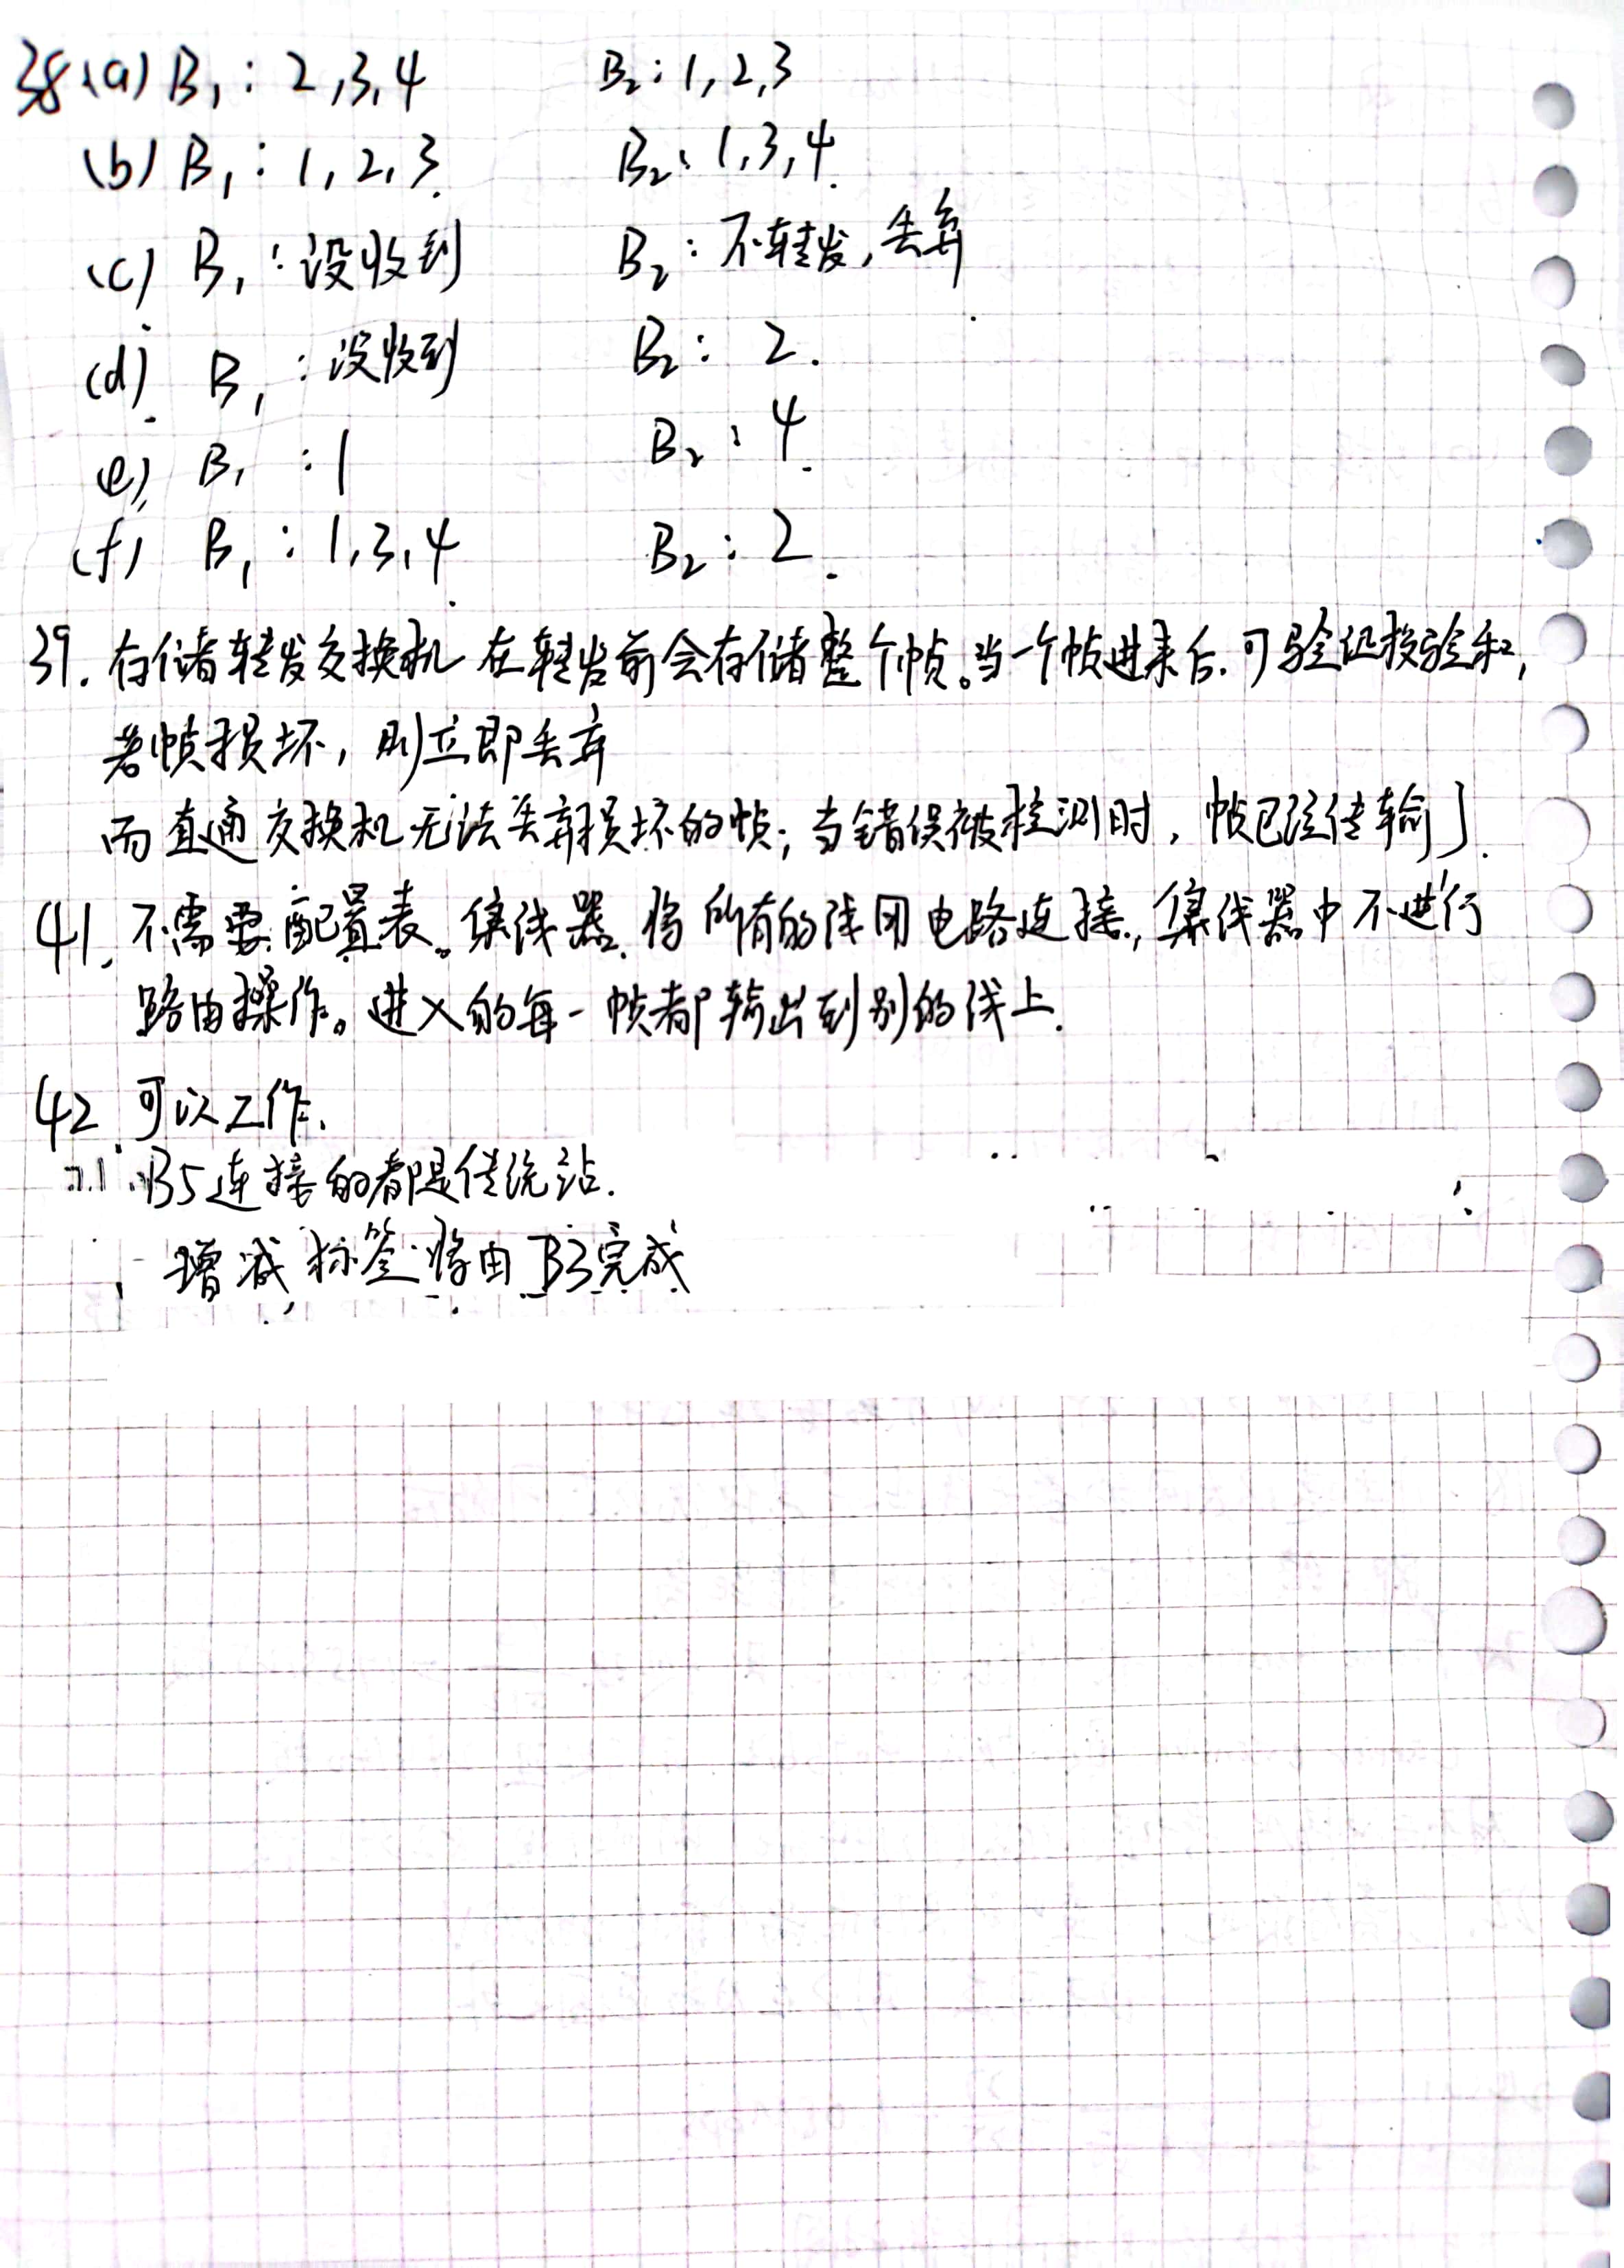 38.(a) B₁: 2,3,4 B₂: 1,2,3
(b) B₁: 1,2,3. B₂: 1,3,4.
(c) B₁: 没收到 B₂: 不转发,丢弃
(d) B₁: 没收到 B₂: 2.
(e) B₁: 1 B₂: 4.
(f) B₁: 1,3,4 B₂: 2.
39. 存储转发交换机 在转发前会存储整个帧。当一个帧进来后.可验证校验和,
若帧损坏, 则立即丢弃
而直通交换机无法丢弃损坏的帧; 当错误被检测时, 帧已经传输了.
41. 不需要配置表。集线器将所有的线用电路连接, 集线器中不进行
路由操作。进入的每一帧都输出到别的线上.
42 可以工作.
B5连接的都是传统站.
增减标签将由B3完成